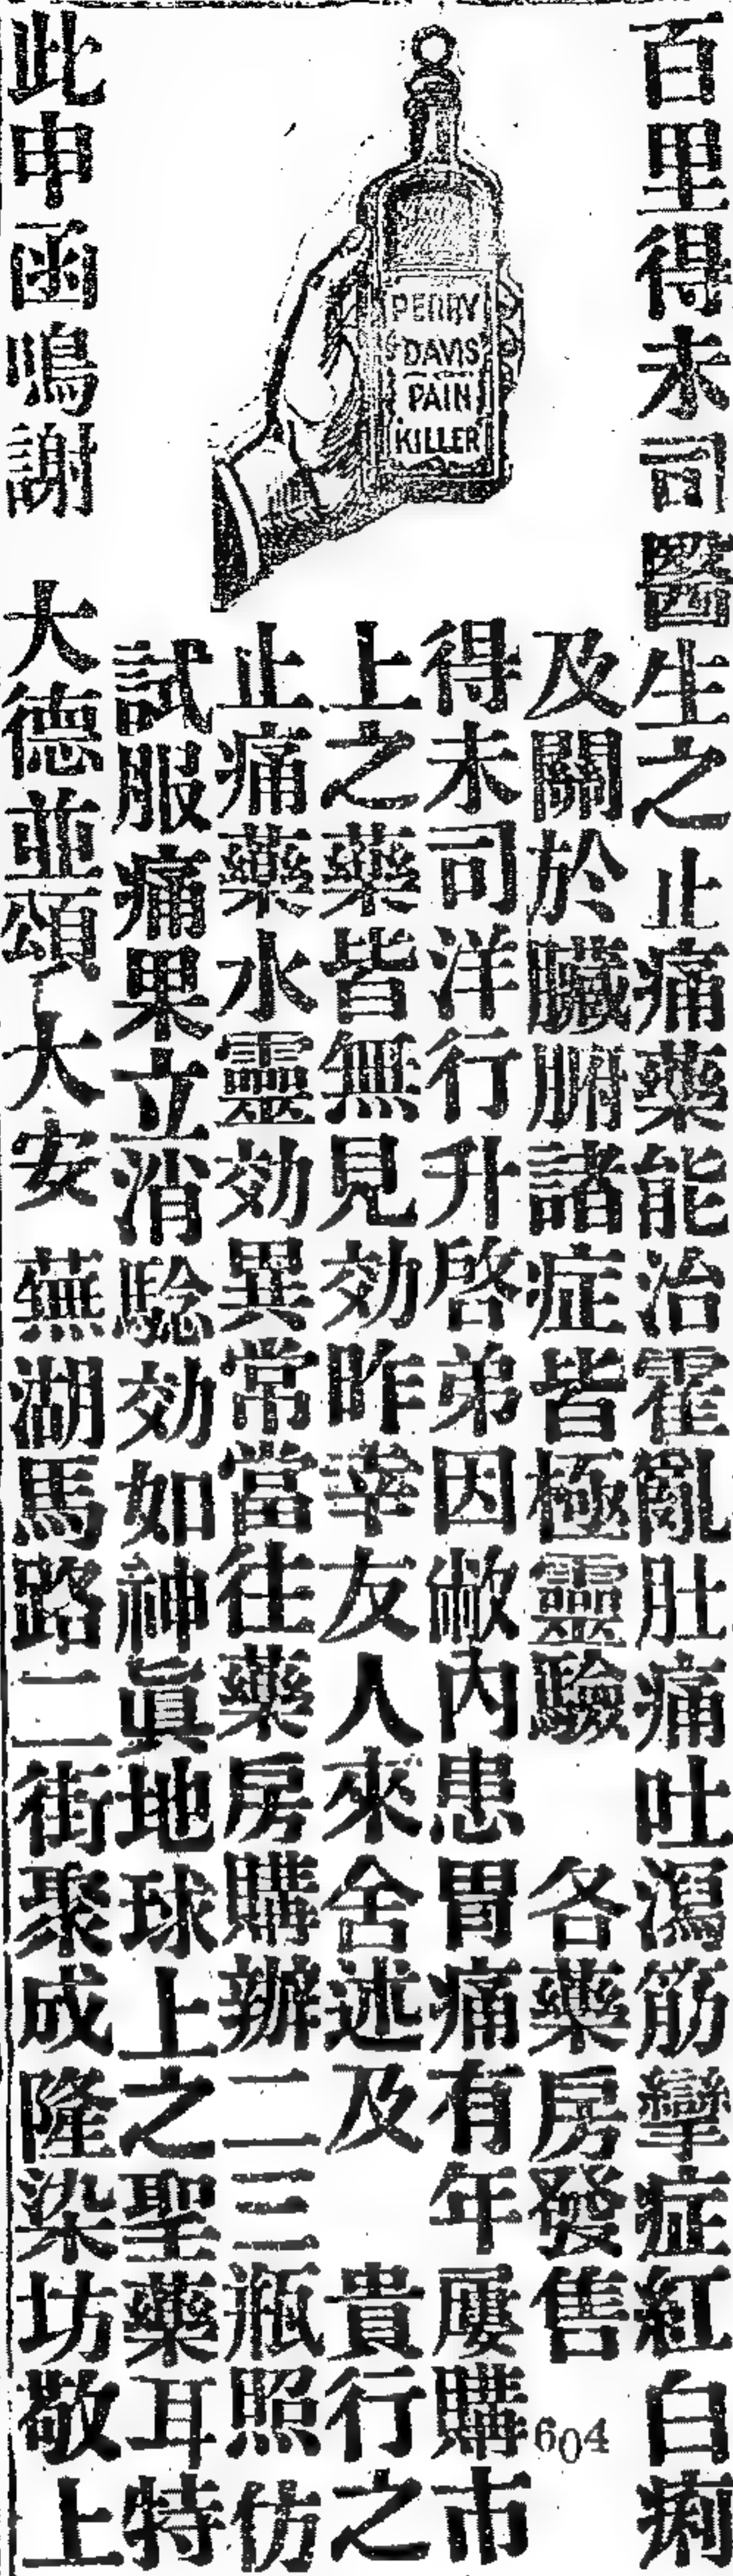 百里得未司醫生之止痛藥能治霍亂肚痛吐瀉筋攣症紅白痢
及關於臟腑諸症皆極靈驗 各藥房發售 604
得未司洋行升啓弟因敝內患胃痛有年屢購市
上之藥皆無見効昨幸友人來舍述及 貴行之
止痛藥水靈効異常當往藥房購辦二三瓶照仿
試服痛果立消騐効如神眞地球上之聖藥耳特
此申函鳴謝 大德並頌 大安 蕪湖馬路二街聚成隆染坊敬上
PERRY
DAVIS
PAIN
KILLER